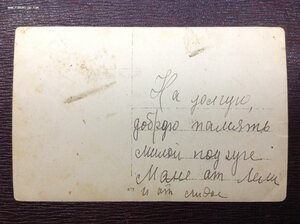 На долгую,
добрую память
милой подруге
Мане от Лели
и от